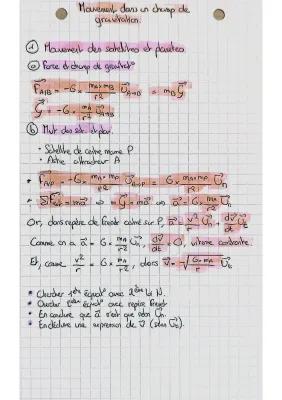 Mouvement dans un champ de
gravitation.
① Mouvement des satellites et planètes
ⓐ Force et champ de gravitat°
F⃗A/B = -G × mA×mB/r² U⃗A→B = mB G⃗
G⃗ = -G × mA/r² U⃗A→B
ⓑ Mvt des sat. et plan.
• Satellite de centre masse P
• Astre attracteur A
• F⃗A/P = -G × mA×mP/r² U⃗A→P = G × mA×mP/r² U⃗n
• ΣF⃗ext = ma⃗ ⇒ mG⃗ = ma⃗ ⇒ a⃗ = G × mA/r² U⃗n
Or, dans repère de Frenet centré sur P, a⃗ = v²/r U⃗n + dv/dt U⃗t
Comme on a a⃗ = G × mA/r² U⃗n, dv/dt = 0, vitesse constante.
Et, comme v²/r = G × mA/r², alors v⃗ = √(G×mA/r) U⃗t
• Chercher 1ère équat° avec 2ème loi N.
• Chercher 2ème équat° avec repère Frenet
• En conclure que a⃗ n'est que selon U⃗n.
• En déduire une expression de v⃗ (selon U⃗t).